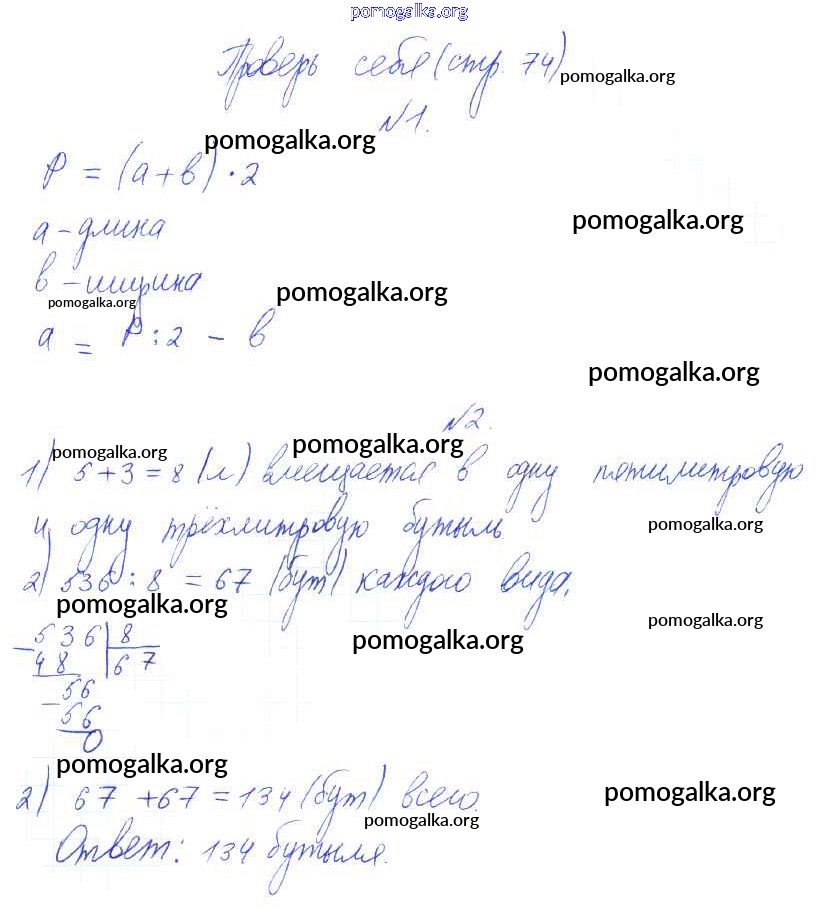 pomogalka.org
Проверь себя (стр. 74)
pomogalka.org
№1.
pomogalka.org
P = (a + в) · 2
pomogalka.org
а - длина
в - ширина
pomogalka.org
pomogalka.org
a = P : 2 - в
pomogalka.org
№2.
pomogalka.org
pomogalka.org
1) 5 + 3 = 8 (л) вмещается в одну пятилитровую
и одну трёхлитровую бутыль
pomogalka.org
2) 536 : 8 = 67 (бут) каждого вида.
pomogalka.org
pomogalka.org
pomogalka.org
- 536 | 8
48 | 67
- 56
56
0
pomogalka.org
2) 67 + 67 = 134 (бут) всего.
pomogalka.org
pomogalka.org
Ответ: 134 бутыля.